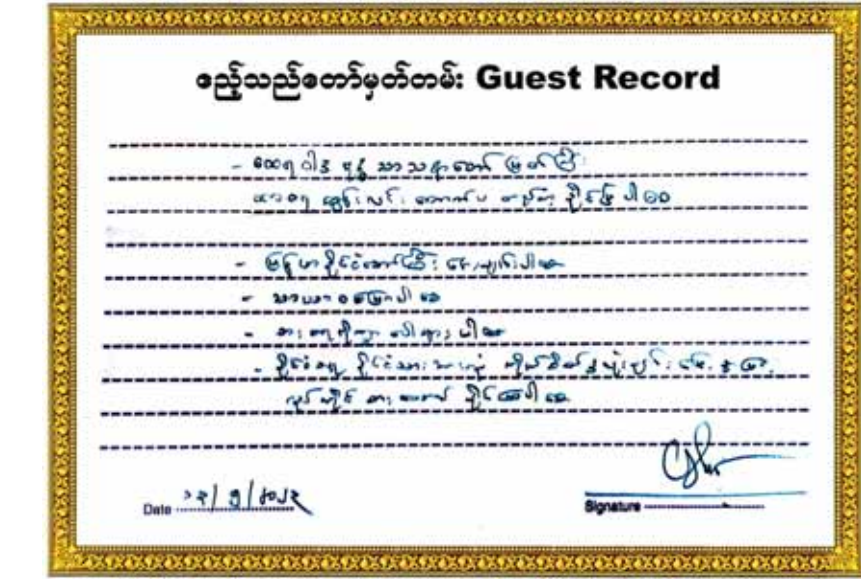 ဧည့်သည်တော်မှတ်တမ်း Guest Record
- ထေရဝါဒ ဗုဒ္ဓ သာသနာတော် မြတ်ကြီး
ထာဝရ ထွန်းလင်း တောက်ပ တည်တံ့ နိုင်ပါစေ
- မြန်မာနိုင်ငံတော်ကြီး အေးချမ်းပါစေ
- သာယာ ဝပြောပါ စေ
- စားရေရိက္ခာ ပေါများ ပါစေ
- နိုင်ငံရေး နိုင်ငံသားအားလုံး ကိုယ်စိတ်နှစ်ဖြာ
လုပ်ကိုင် စားသောက် နိုင်ကြပါ စေ
Date ၁၃/၅/၂၀၂၃
Signature